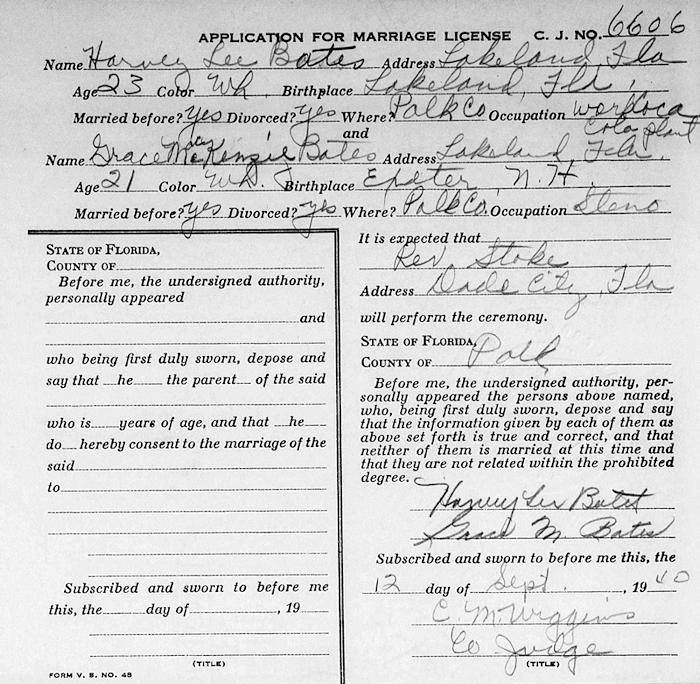 APPLICATION FOR MARRIAGE LICENSE C. J. NO. 6606
Name Harvey Lee Bates Address Lakeland, Fla
Age 23 Color Wh Birthplace Lakeland, Fla,
Married before? yes Divorced? yes Where? Polk Co Occupation work Coca
Cola plant
and
Name Grace McKenzie Bates Address Lakeland Fla.
Age 21 Color Wh. Birthplace Exeter, N. H
Married before? yes Divorced? yes Where? Polk Co. Occupation Steno
STATE OF FLORIDA,
COUNTY OF
Before me, the undersigned authority,
personally appeared
and
who being first duly sworn, depose and
say that he the parent of the said
who is years of age, and that he
do hereby consent to the marriage of the
said
to
Subscribed and sworn to before me
this, the day of , 19
(TITLE)
FORM V. S. NO. 45
It is expected that
Rev. Stoke
Address Dade City, Fla
will perform the ceremony.
STATE OF FLORIDA,
COUNTY OF Polk
Before me, the undersigned authority, per-
sonally appeared the persons above named,
who, being first duly sworn, depose and say
that the information given by each of them as
above set forth is true and correct, and that
neither of them is married at this time and
that they are not related within the prohibited
degree.
Harvey Lee Bates
Grace M. Bates
Subscribed and sworn to before me this, the
12 day of Sept. , 19 40
C. M. Wiggins
Co Judge
(TITLE)